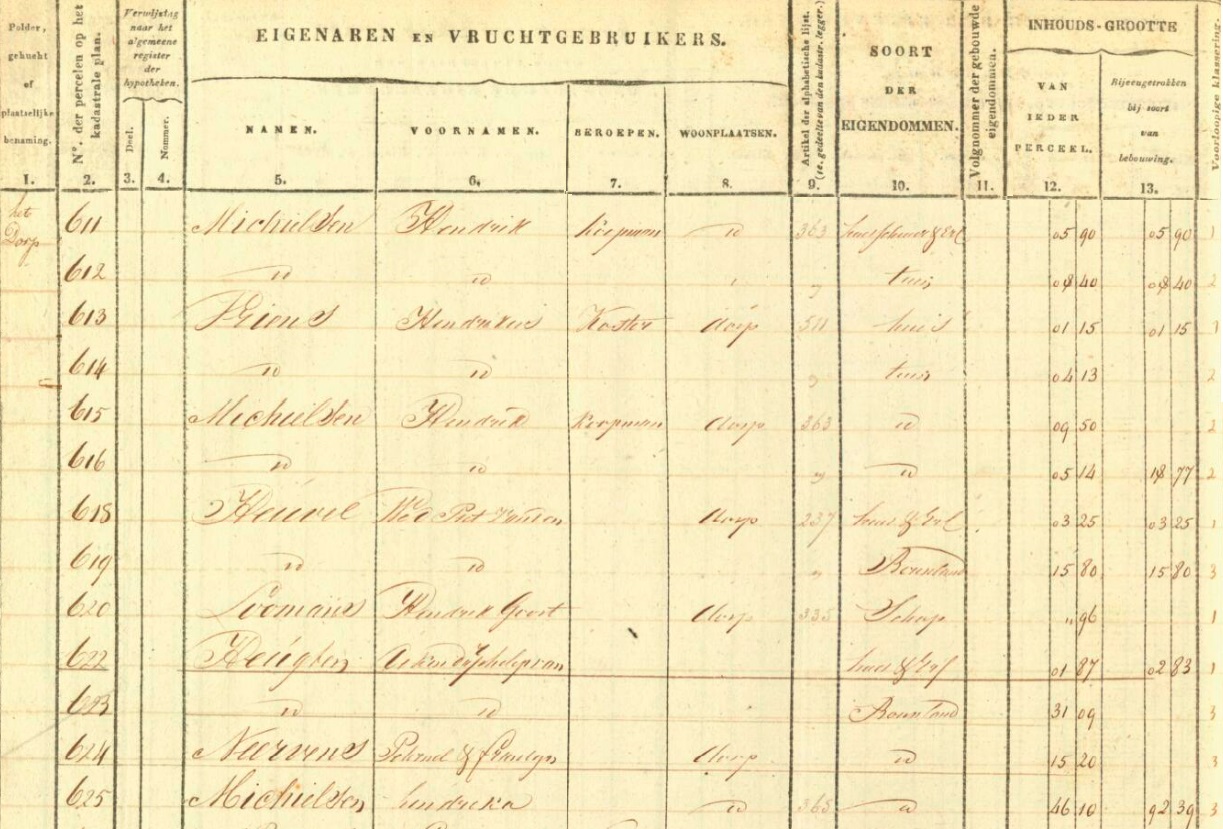 EIGENAREN EN VRUCHTGEBRUIKERS.
INHOUDS-GROOTTE
Polder, gehucht of plaatselijke benaming.
N°. der percelen op het kadastrale plan.
Verwijzing naar het algemeene register der hypotheken.
Deel.
Nommer.
NAMEN.
VOORNAMEN.
BEROEPEN.
WOONPLAATSEN.
Artikel der alphabetische lijst.
SOORT DER EIGENDOMMEN.
Volgnommer der gebouwde eigendommen.
VAN IEDER PERCEEL.
Bijeengetrokken bij soort van bebouwing.
Voorloopige klassering.
1. 2. 3. 4. 5. 6. 7. 8. 9. 10. 11. 12. 13.
het Dorp 611 Michielsen Hendrik Koopman id 363 05 90 05 90 1
612 id id tuin 08 40 08 40 2
613 Hendrikus Koster dorp 511 huis 01 15 01 15 1
614 id id tuin 04 13 2
615 Michielsen Hendrik Koopman dorp 363 id 09 50 2
616 id id id 05 14 18 77 2
618 Heuvel Wed Piet dorp 237 huis & Erf 03 25 03 25 1
619 id id Bouwland 15 80 15 80 3
620 Loomans Hendrik Goort dorp 335 Schop 96 1
622 huis & Erf 01 87 02 83 1
623 id id Bouwland 31 09 3
624 Neervens dorp id 15 20 3
625 Michielsen hendrika id 365 id 46 10 92 39 3